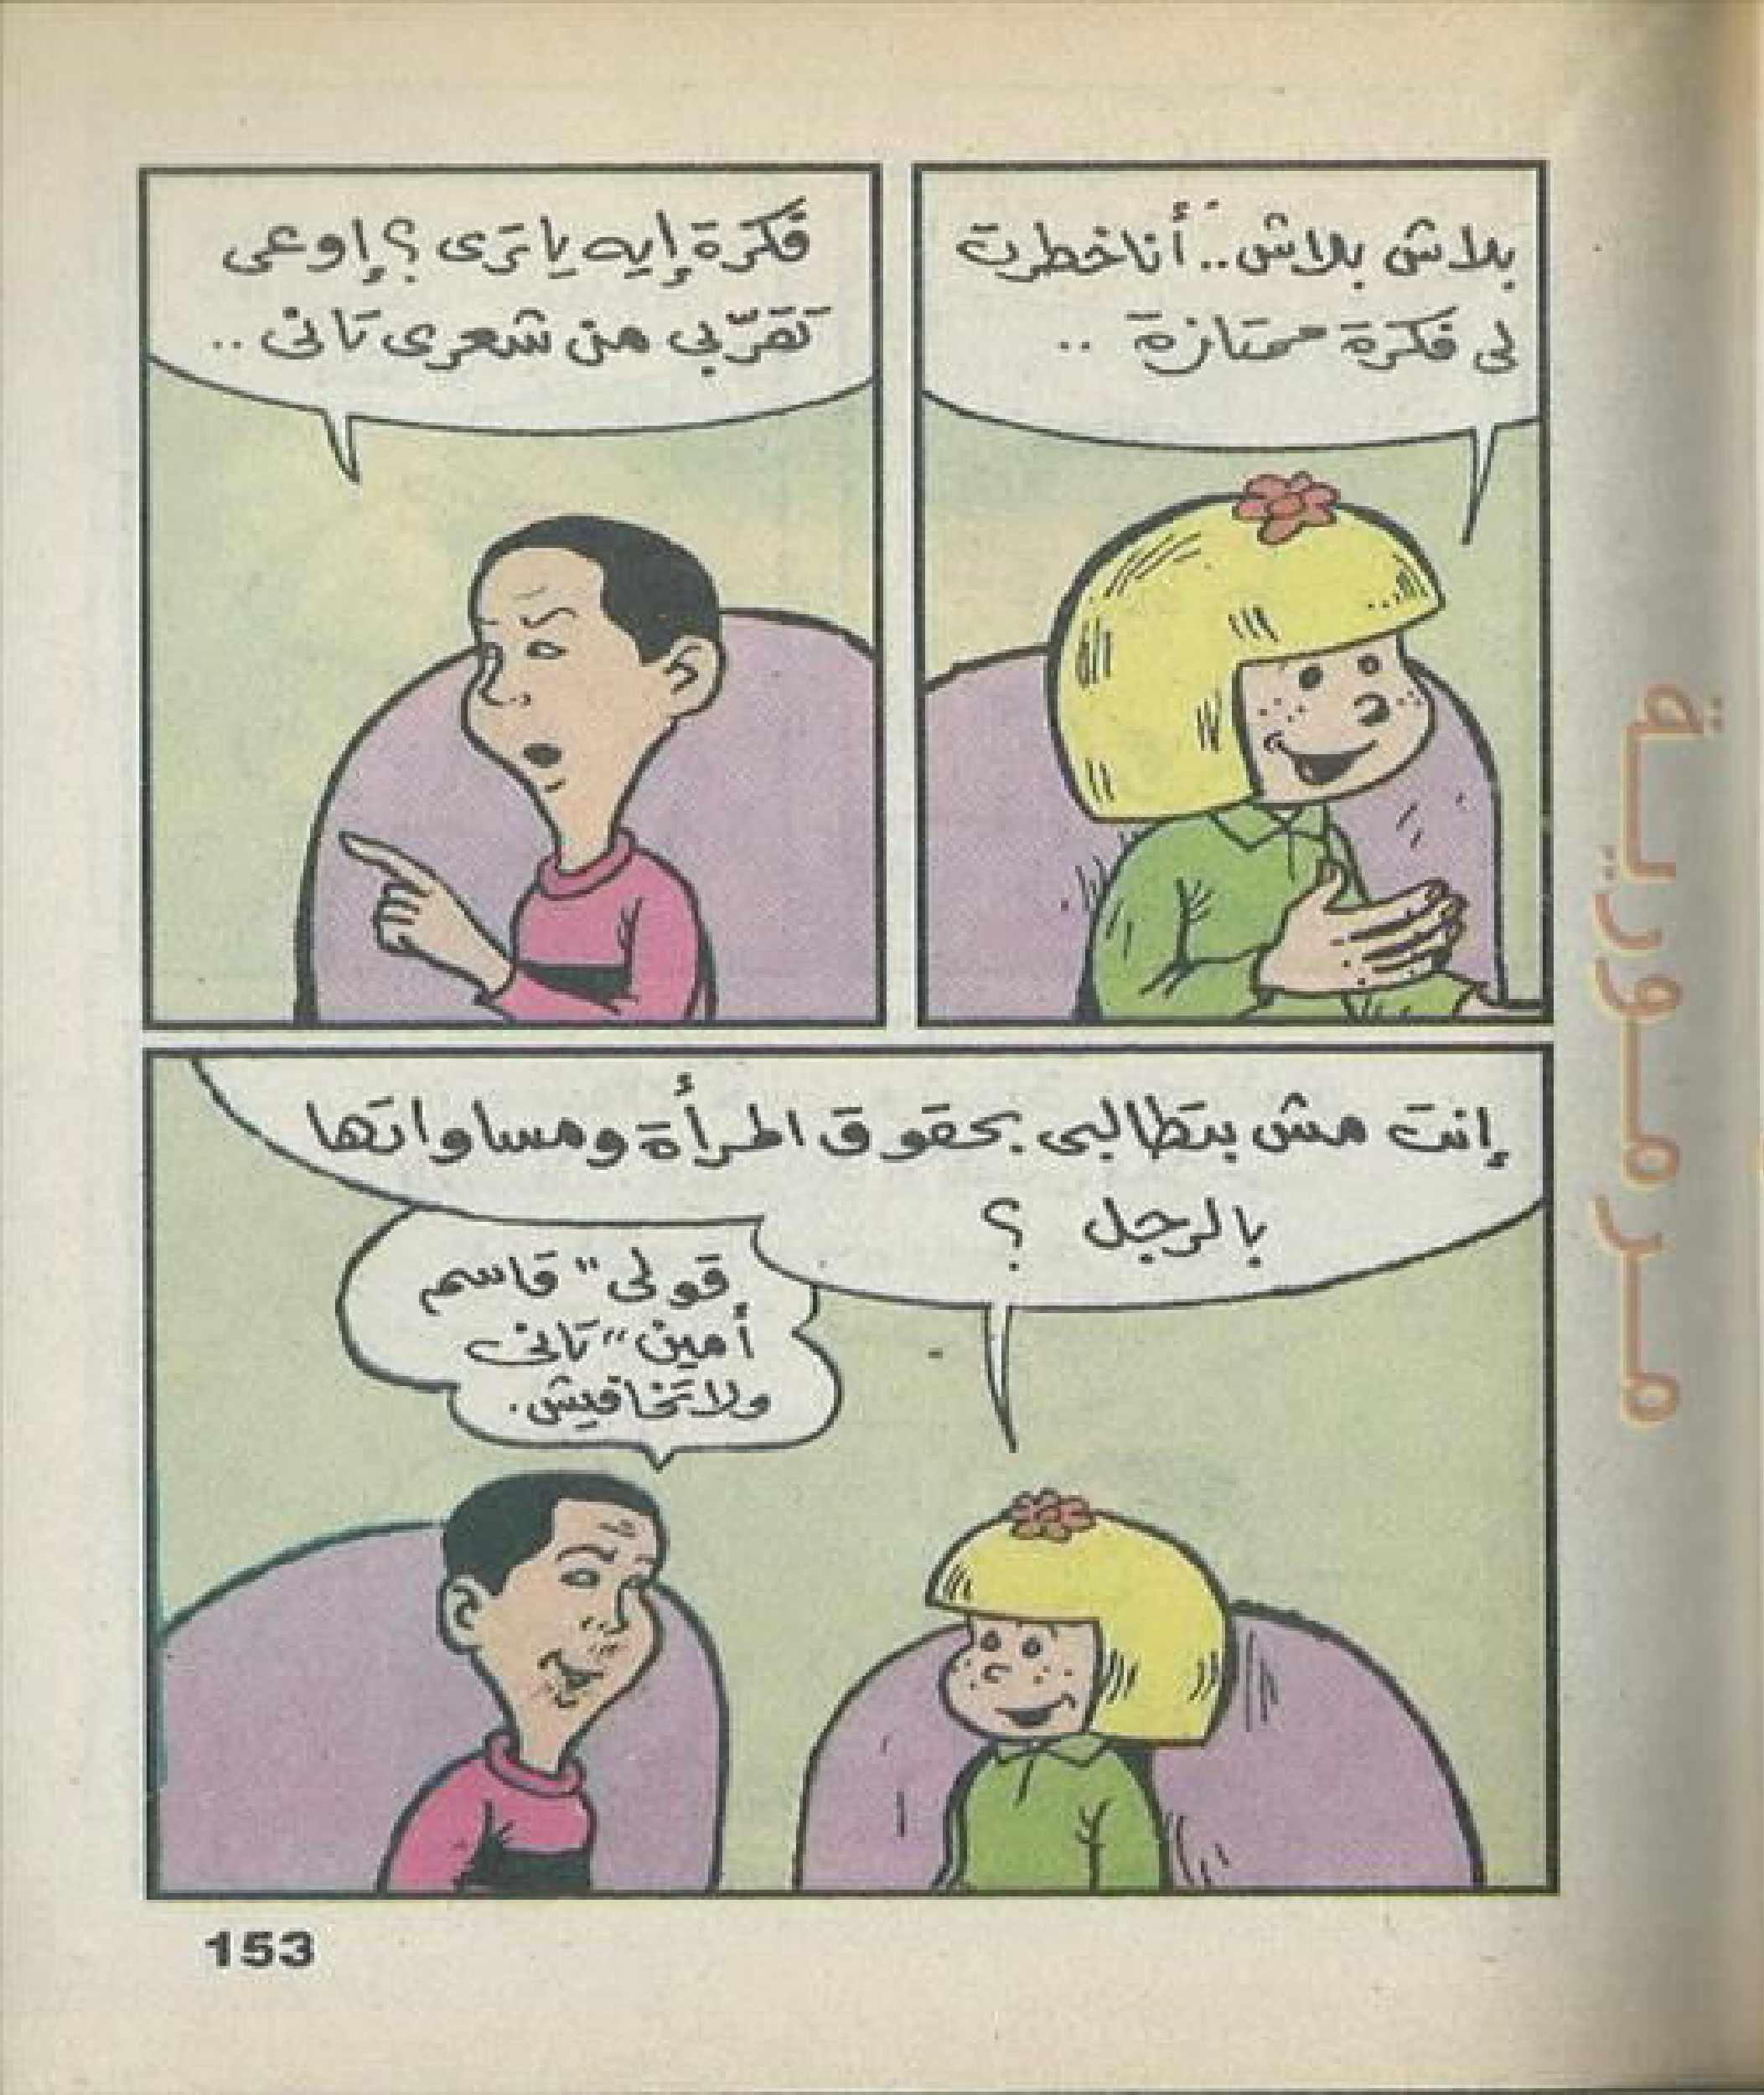 بلاش بلاش.. أنا خطرت
لى فكرة ممتازة ..
فكرة إيه يا ترى ؟ إوعى
تقرّبى من شعرى تانى ..
إنت مش بتطالبى بحقوق المرأة ومساواتها
بالرجل ؟
قولى "قاسم
أمين" تانى
ولا تخافيش.
مرمورية
153